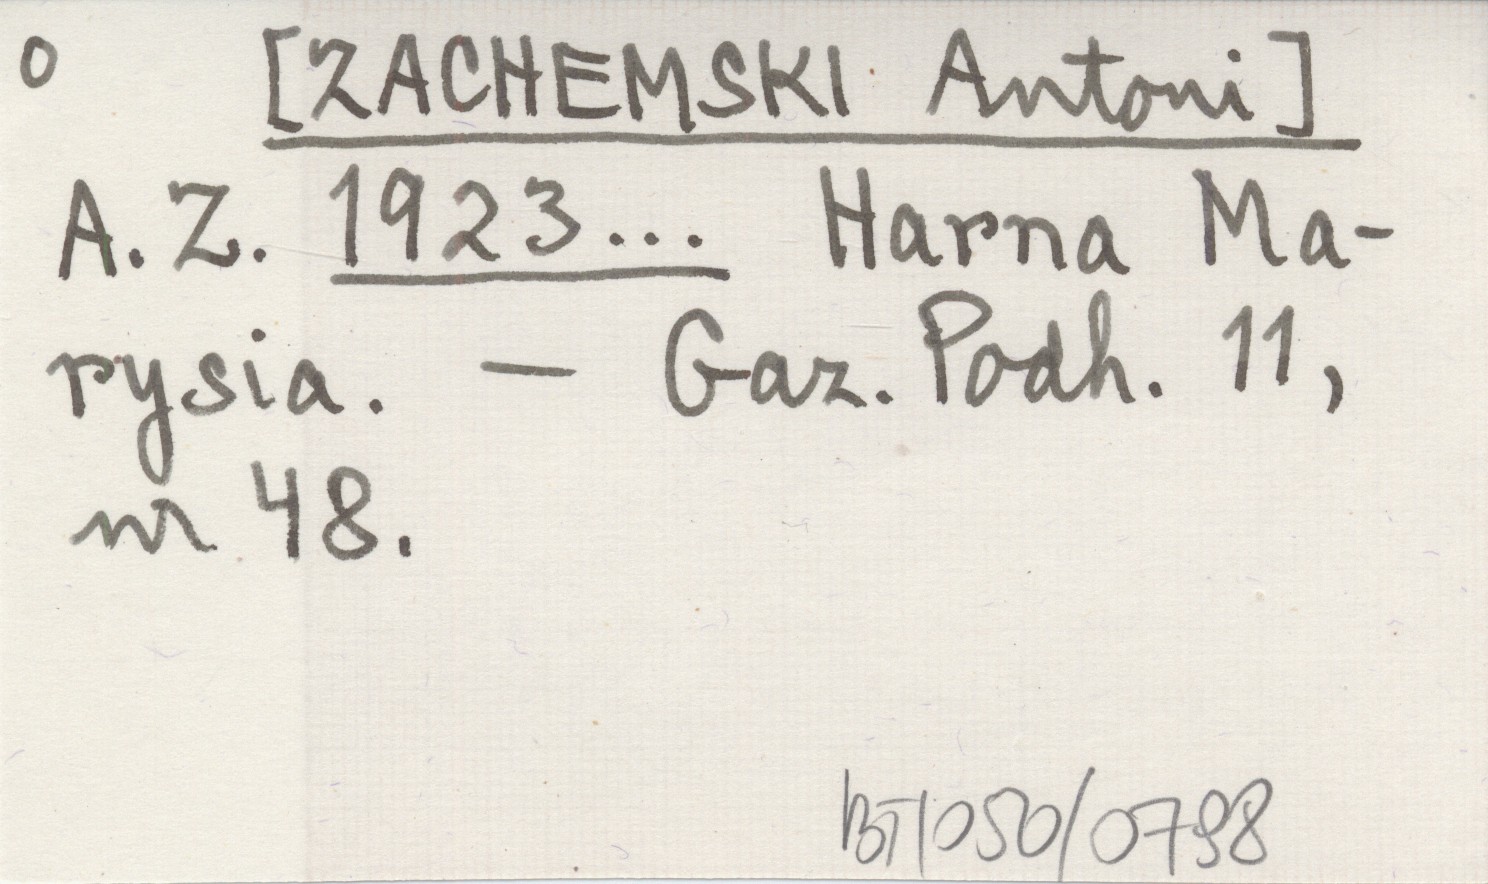 o [ZACHEMSKI Antoni]
A. Z. 1923... Harna Ma-
rysia. — Gaz. Podh. 11,
nr 48.
BT/050/0798